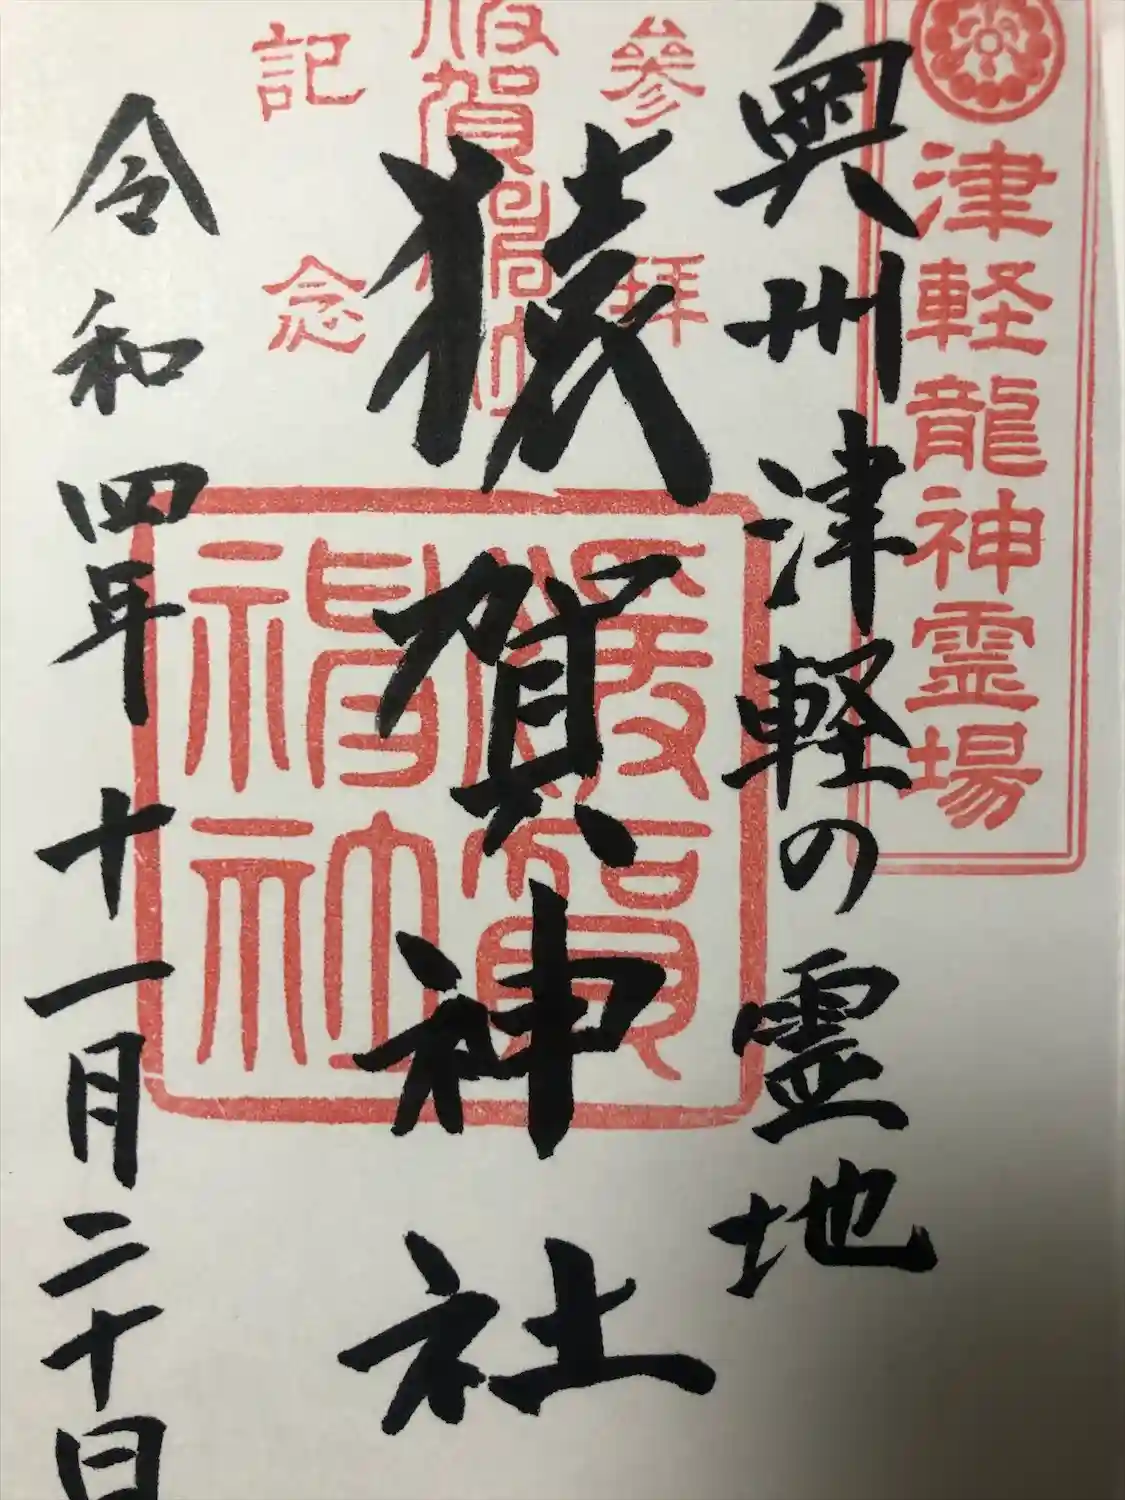 津軽龍神霊場
奥州津軽の霊地
参拝
猿賀神社
猿賀神社
記念
令和四年十一月二十日